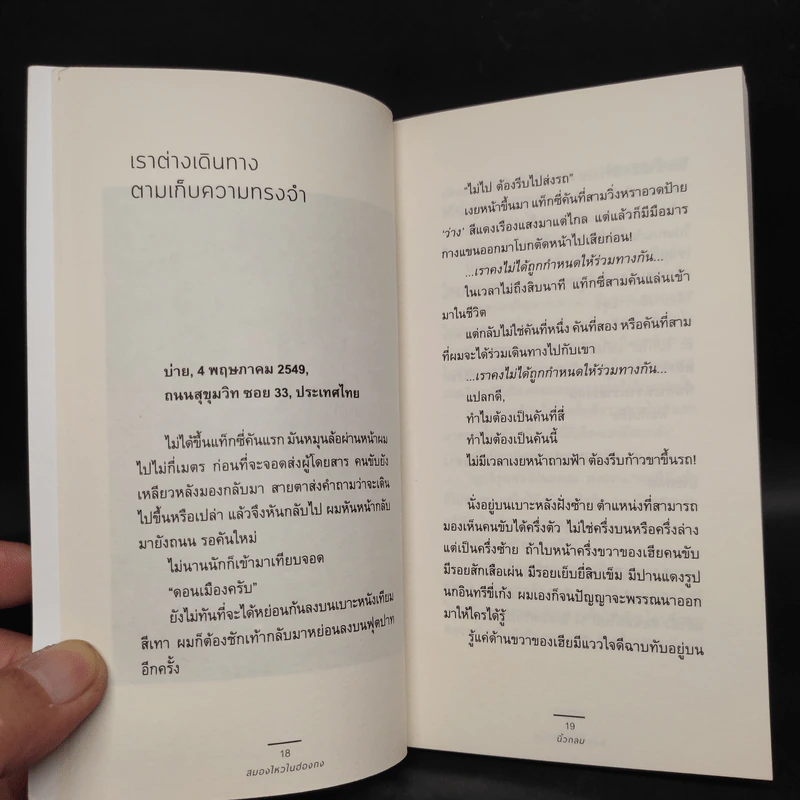 เราต่างเดินทาง
ตามเก็บความทรงจำ
บ่าย, 4 พฤษภาคม 2549,
ถนนสุขุมวิท ซอย 33, ประเทศไทย
ไม่ได้ขึ้นแท็กซี่คันแรก มันหมุนล้อผ่านหน้าผม
ไปไม่กี่เมตร ก่อนที่จะจอดส่งผู้โดยสาร คนขับยัง
เหลียวหลังมองกลับมา สายตาส่งคำถามว่าจะเดิน
ไปขึ้นหรือเปล่า แล้วจึงหันกลับไป ผมหันหน้ากลับ
มายังถนน รอคันใหม่
ไม่นานนักก็เข้ามาเทียบจอด
“ดอนเมืองครับ”
ยังไม่ทันที่จะได้หย่อนก้นลงบนเบาะหนังเทียม
สีเทา ผมก็ต้องชักเท้ากลับมาหย่อนลงบนฟุตปาท
อีกครั้ง
18
สมองไหวในฮ่องกง
“ไม่ไป ต้องรีบไปส่งรถ”
เงยหน้าขึ้นมา แท็กซี่คันที่สามวิ่งหราอวดป้าย
‘ว่าง’ สีแดงเรืองแสงมาแต่ไกล แต่แล้วก็มีมือมาร
กางแขนออกมาโบกตัดหน้าไปเสียก่อน!
...เราคงไม่ได้ถูกกำหนดให้ร่วมทางกัน...
ในเวลาไม่ถึงสิบนาที แท็กซี่สามคันแล่นเข้า
มาในชีวิต
แต่กลับไม่ใช่คันที่หนึ่ง คันที่สอง หรือคันที่สาม
ที่ผมจะได้ร่วมเดินทางไปกับเขา
...เราคงไม่ได้ถูกกำหนดให้ร่วมทางกัน...
แปลกดี,
ทำไมต้องเป็นคันที่สี่
ทำไมต้องเป็นคันนี้
ไม่มีเวลาเงยหน้าถามฟ้า ต้องรีบก้าวขาขึ้นรถ!
นั่งอยู่บนเบาะหลังฝั่งซ้าย ตำแหน่งที่สามารถ
มองเห็นคนขับได้ครึ่งตัว ไม่ใช่ครึ่งบนหรือครึ่งล่าง
แต่เป็นครึ่งซ้าย ถ้าใบหน้าครึ่งขวาของเฮียคนขับ
มีรอยสักเสือเผ่น มีรอยเย็บยี่สิบเข็ม มีปานแดงรูป
นกอินทรีขี่เก้ง ผมเองก็จนปัญญาจะพรรณนาออก
มาให้ใครได้รู้
รู้แค่ด้านขวาของเฮียมีแววใจดีฉาบทับอยู่บน
19
นิ้วกลม